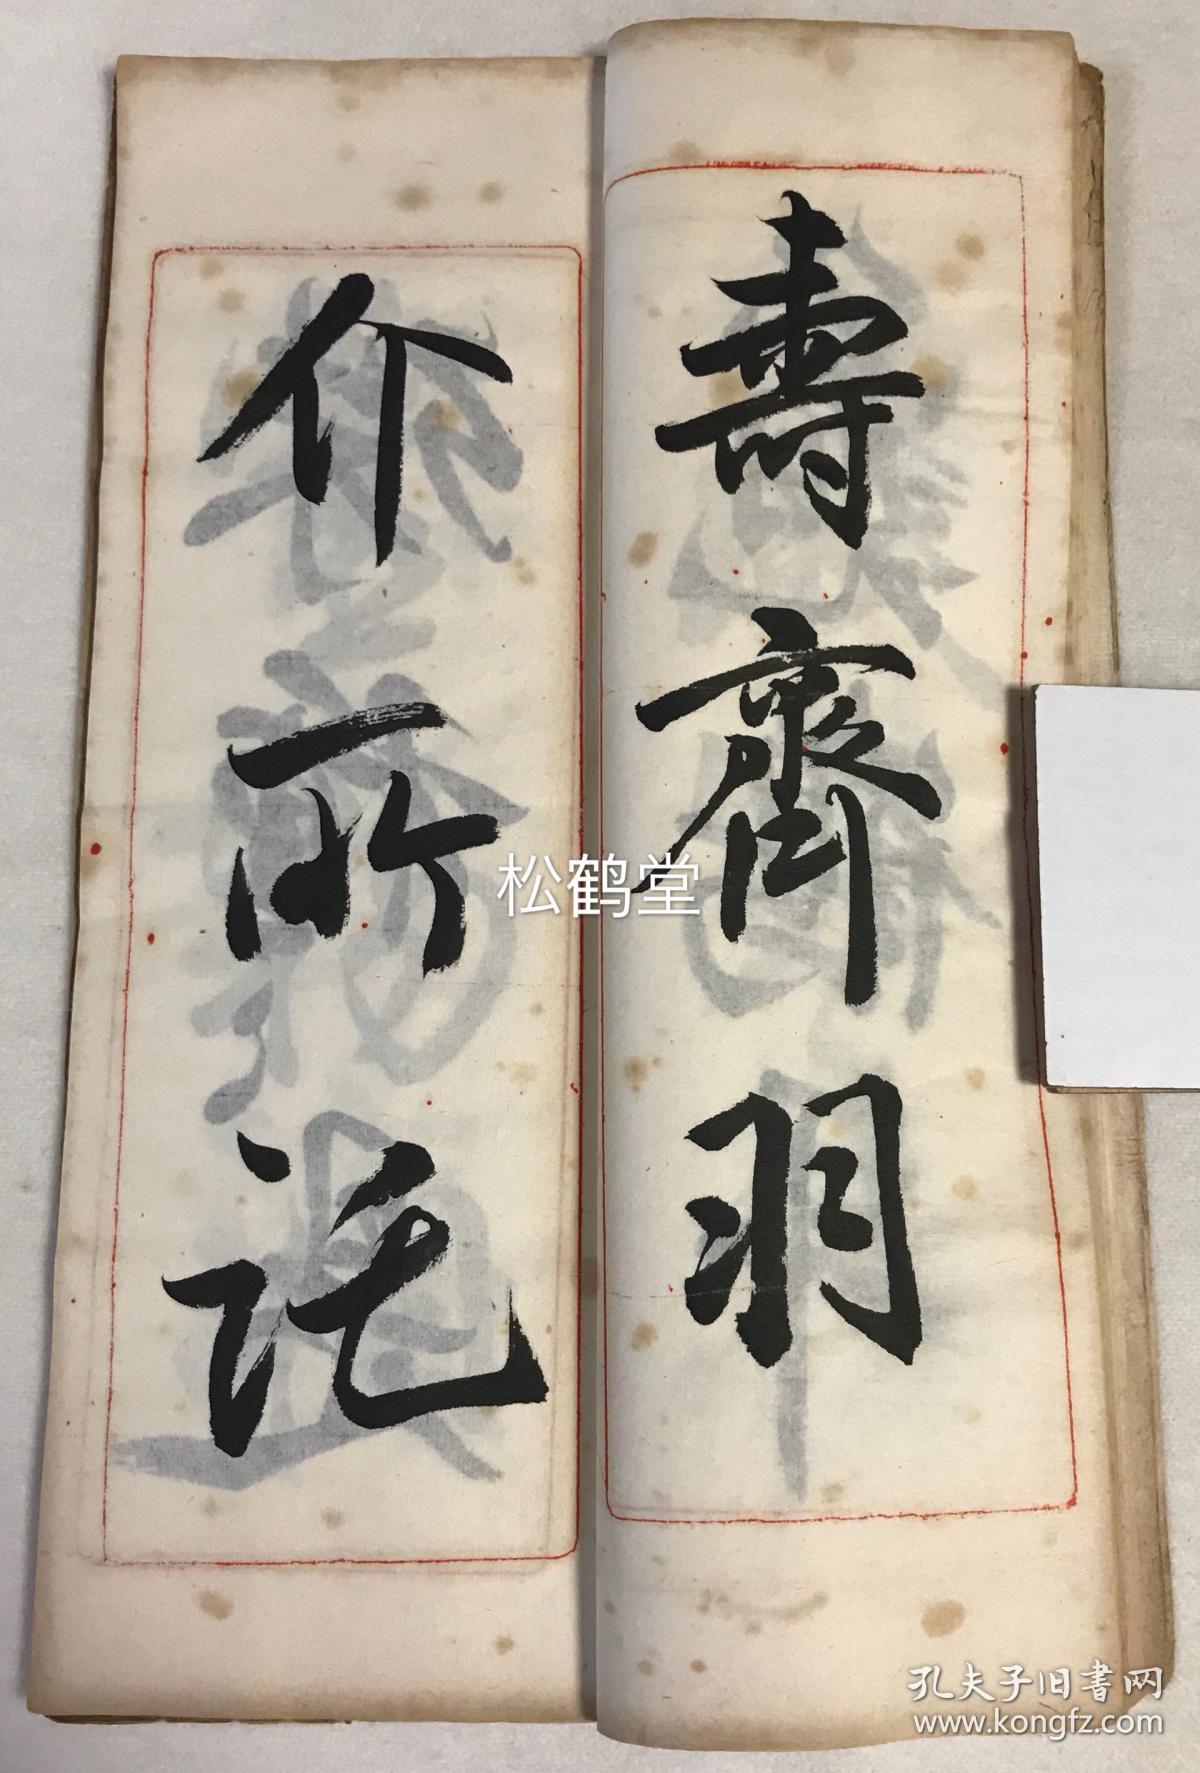 壽齊羽
介所託
松鹤堂
孔夫子旧書网
www.kongfz.com